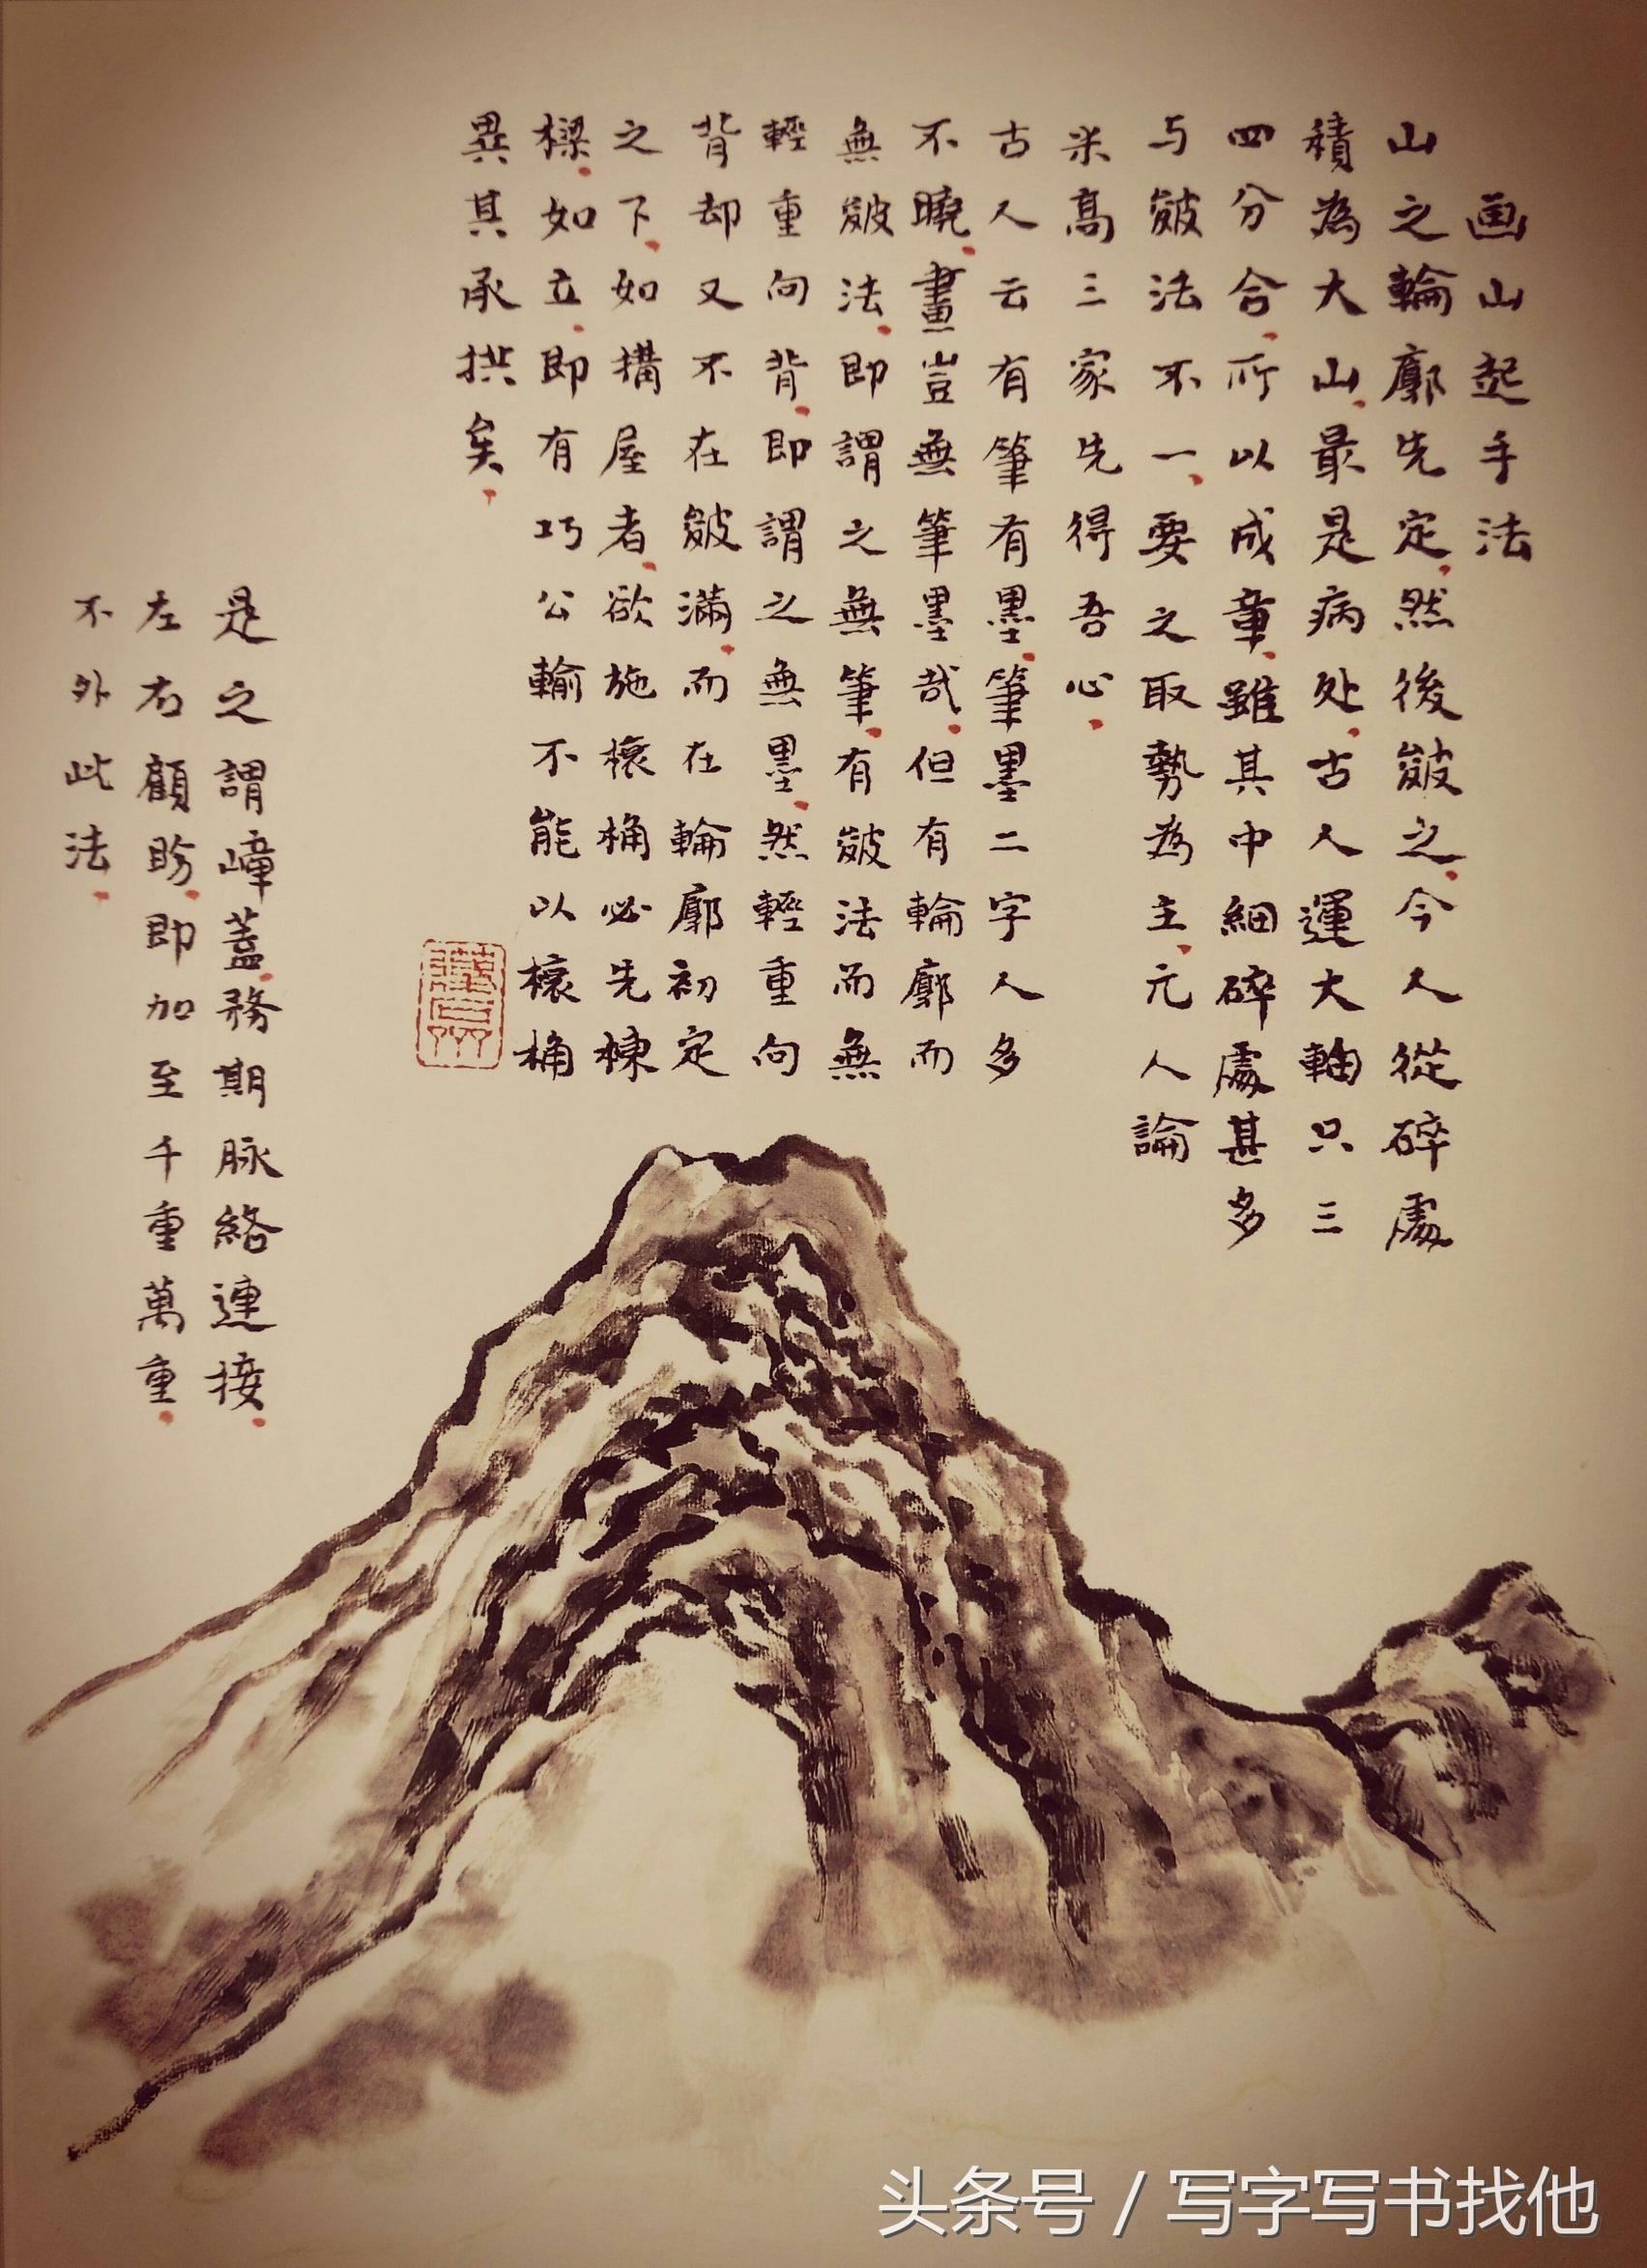 画山起手法
山之輪廓先定然後皴之今人從碎處
積為大山最是病处古人運大軸只三
四分合所以成章雖其中細碎處甚多
与皴法不一要之取勢為主元人論
米高三家先得吾心
古人云有筆有墨筆墨二字人多
不曉畫豈無筆墨哉但有輪廓而
無皴法即謂之無筆有皴法而無
輕重向背即謂之無墨然輕重向
背却又不在皴滿而在輪廓初定
之下如搆屋者欲施榱桷必先棟
樑如立即有巧公輸不能以榱桷
異其承拱矣
是之謂嶂蓋務期脉絡連接
左右顧盼即加至千重萬重
不外此法
头条号 / 写字写书找他